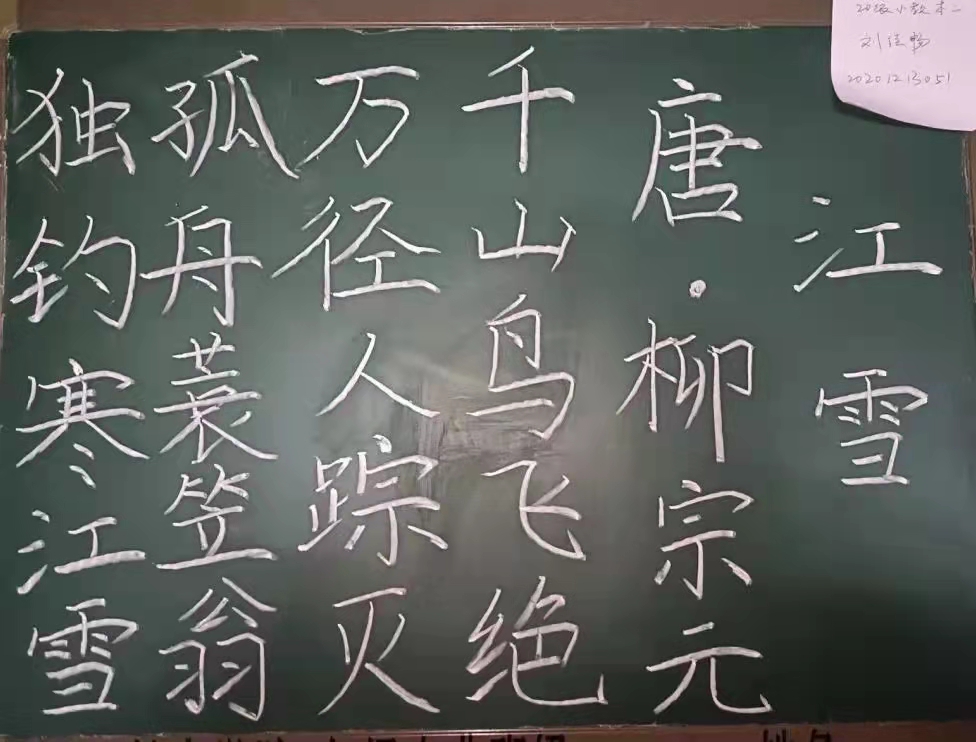 江雪
唐·柳宗元
千山鸟飞绝
万径人踪灭
孤舟蓑笠翁
独钓寒江雪
20级小教本二
刘佳畅
20201213051